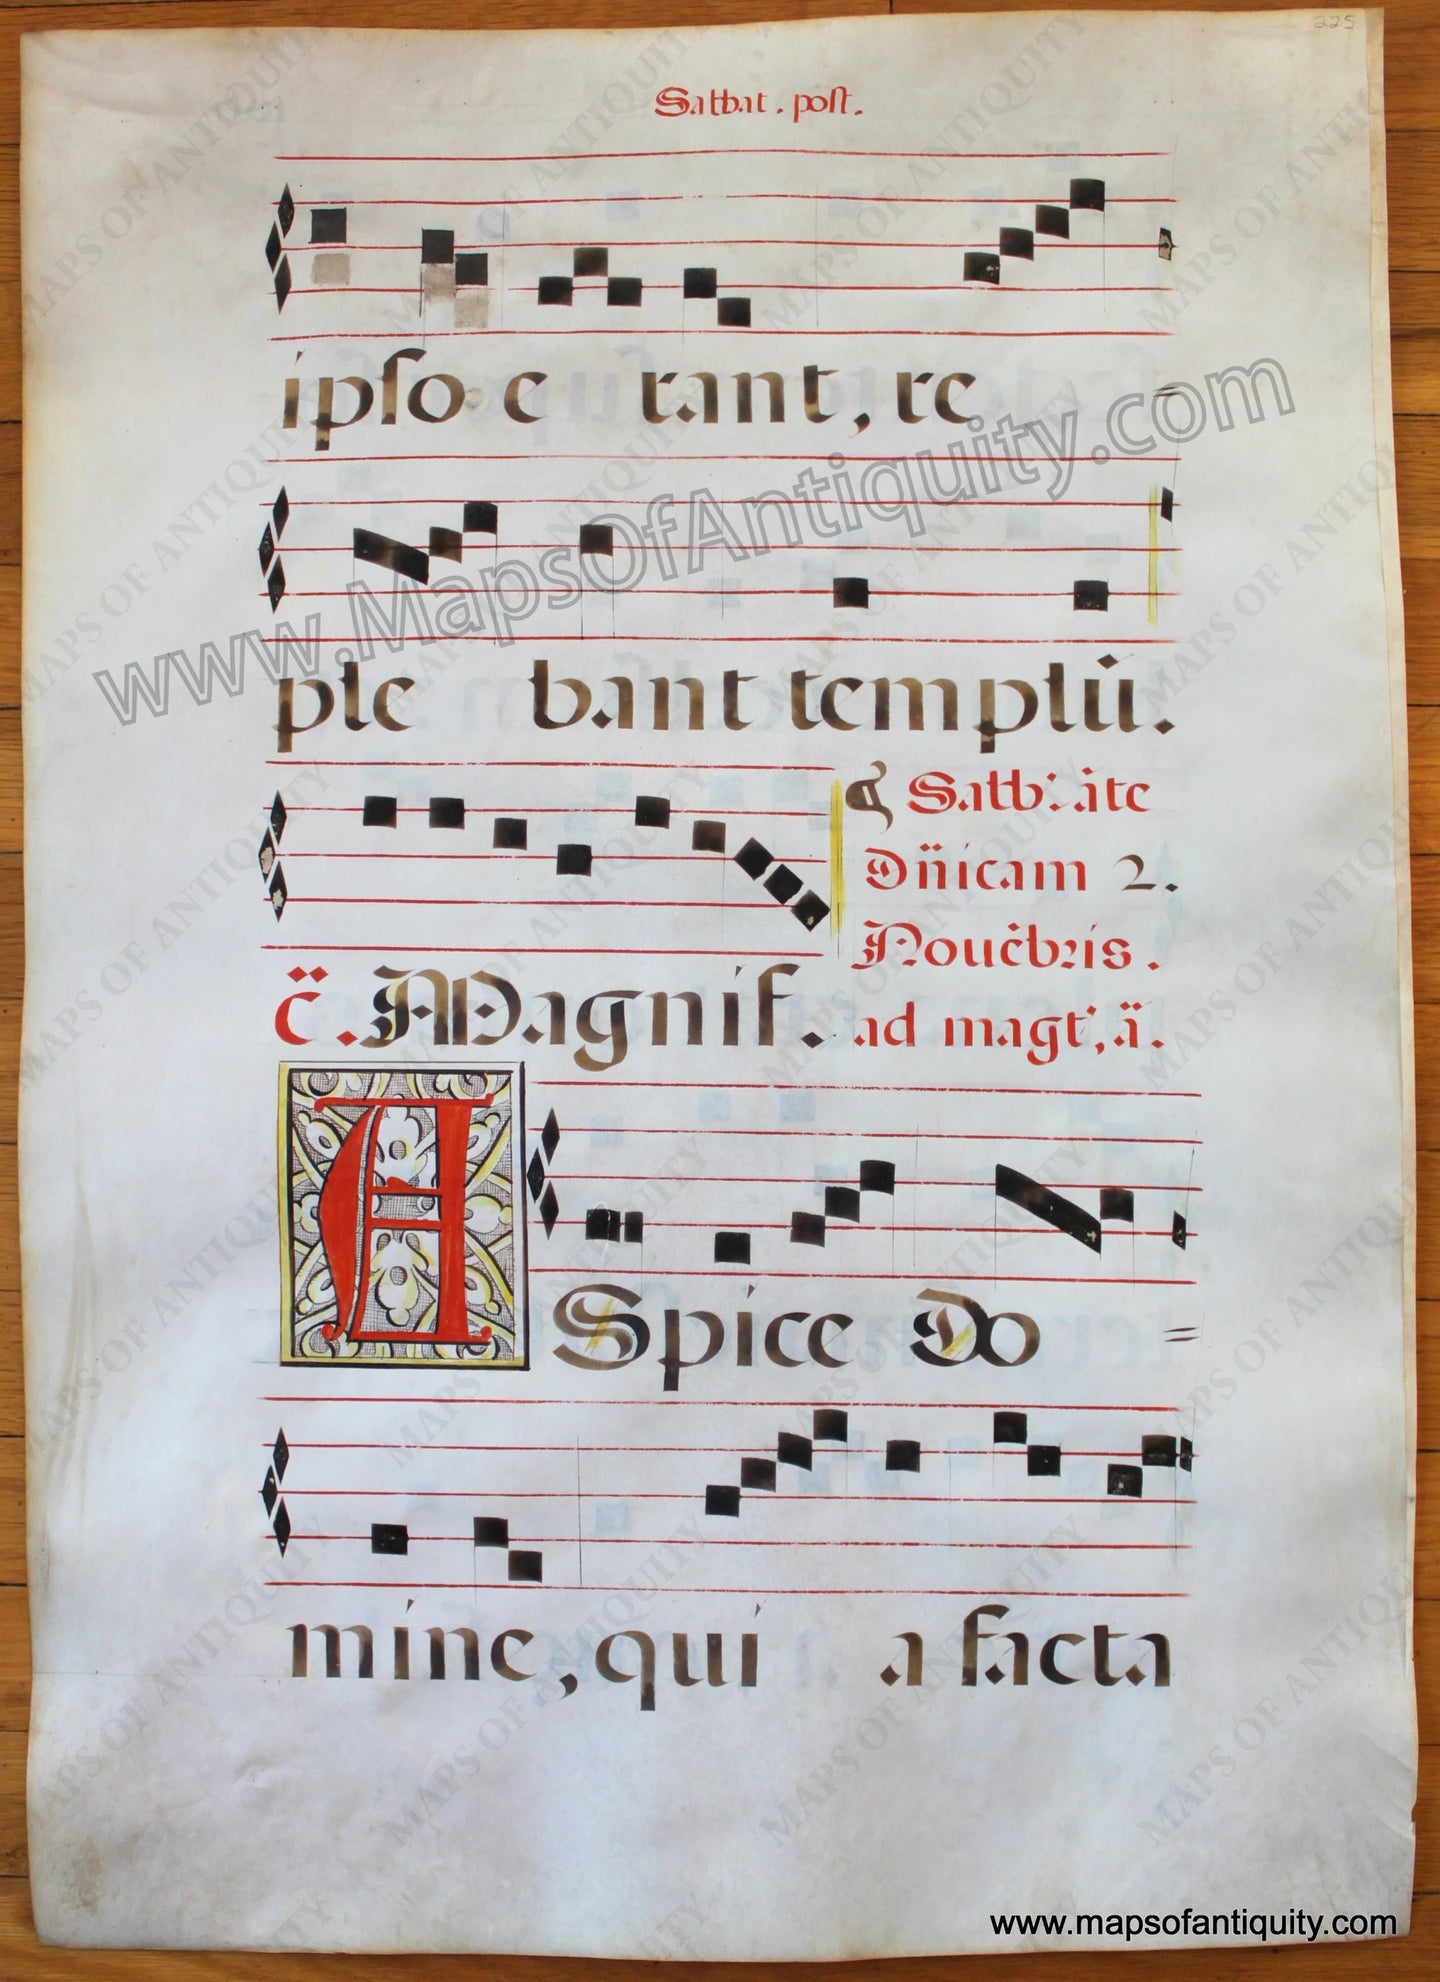 225
Sabbat . post.
ipso e rant, re =
ple bant templū.
Sabb: āte
Dn̄icam 2.
Nouēbris.
c̈. Magnif. ad magt', ä.
ASpice Do =
mine, qui a facta
www.MapsOfAntiquity.com
www.mapsofantiquity.com
MAPS OF ANTIQUITY